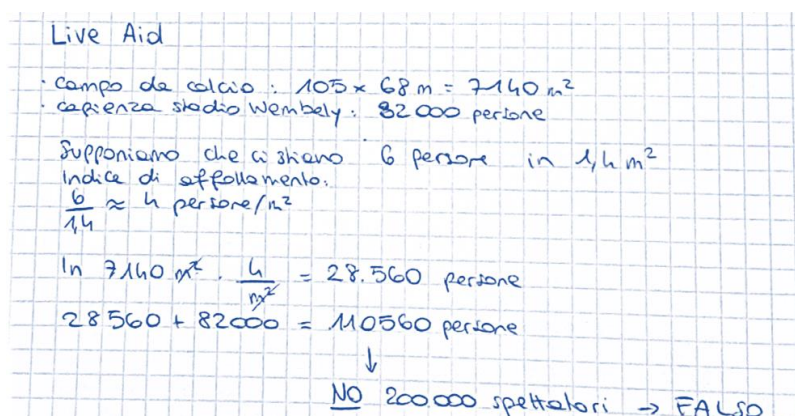 Live Aid
· campo da calcio : 105 × 68 m = 7140 m²
· capienza stadio Wembely : 82000 persone
Supponiamo che ci stiano 6 persone in 1,4 m²
Indice di affollamento:
6/1,4 ≈ 4 persone/m²
In 7140 m² · 4/m² = 28.560 persone
28560 + 82000 = 110560 persone
↓
NO 200.000 spettatori → FALSO